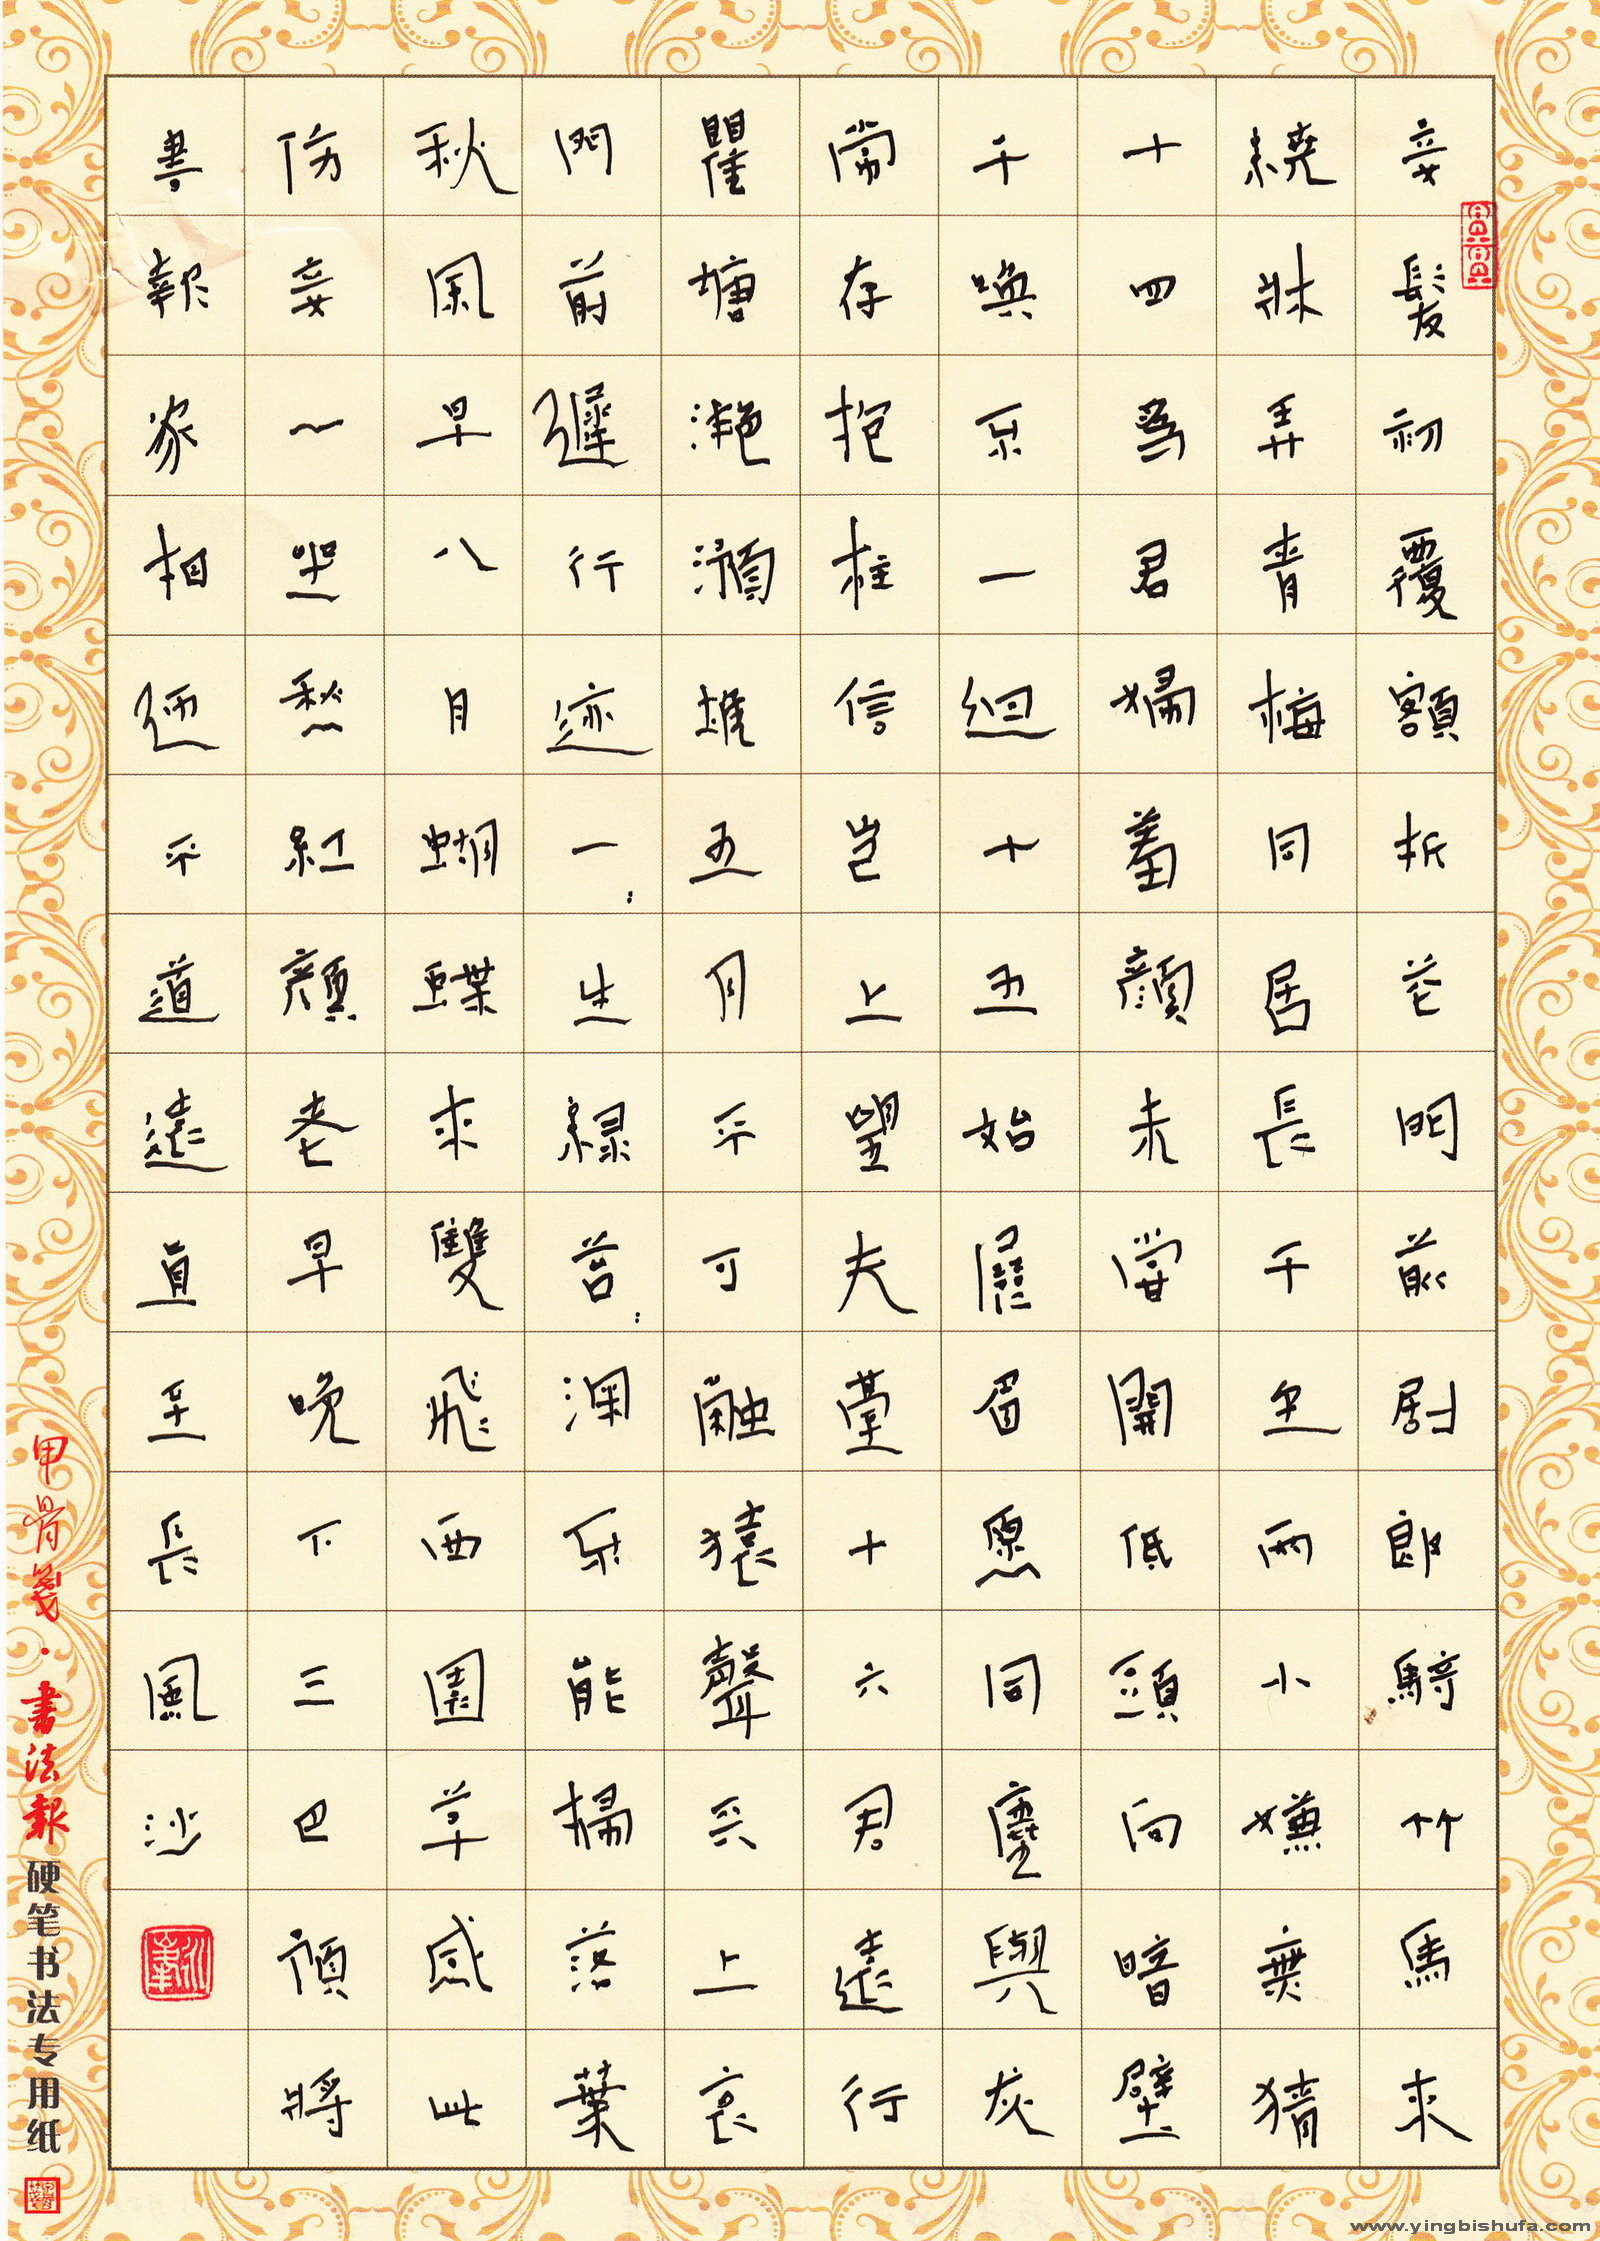 妾髮初覆額折花門前劇郎騎竹馬來
繞牀弄青梅同居長干里兩小嫌無猜
十四爲君婦羞顏未嘗開低頭向暗壁
千喚不一回十五始展眉願同塵與灰
常存抱柱信豈上望夫臺十六君遠行
瞿塘灩澦堆五月不可觸猿聲天上哀
門前遲行迹一:生綠苔:深不能掃落葉
秋風早八月蝴蝶來雙飛西園草感此
傷妾心坐愁紅顏老早晚下三巴預將
書報家相迎不道遠直至長風沙
甲骨箋·書法報 硬笔书法专用纸
www.yingbishufa.com